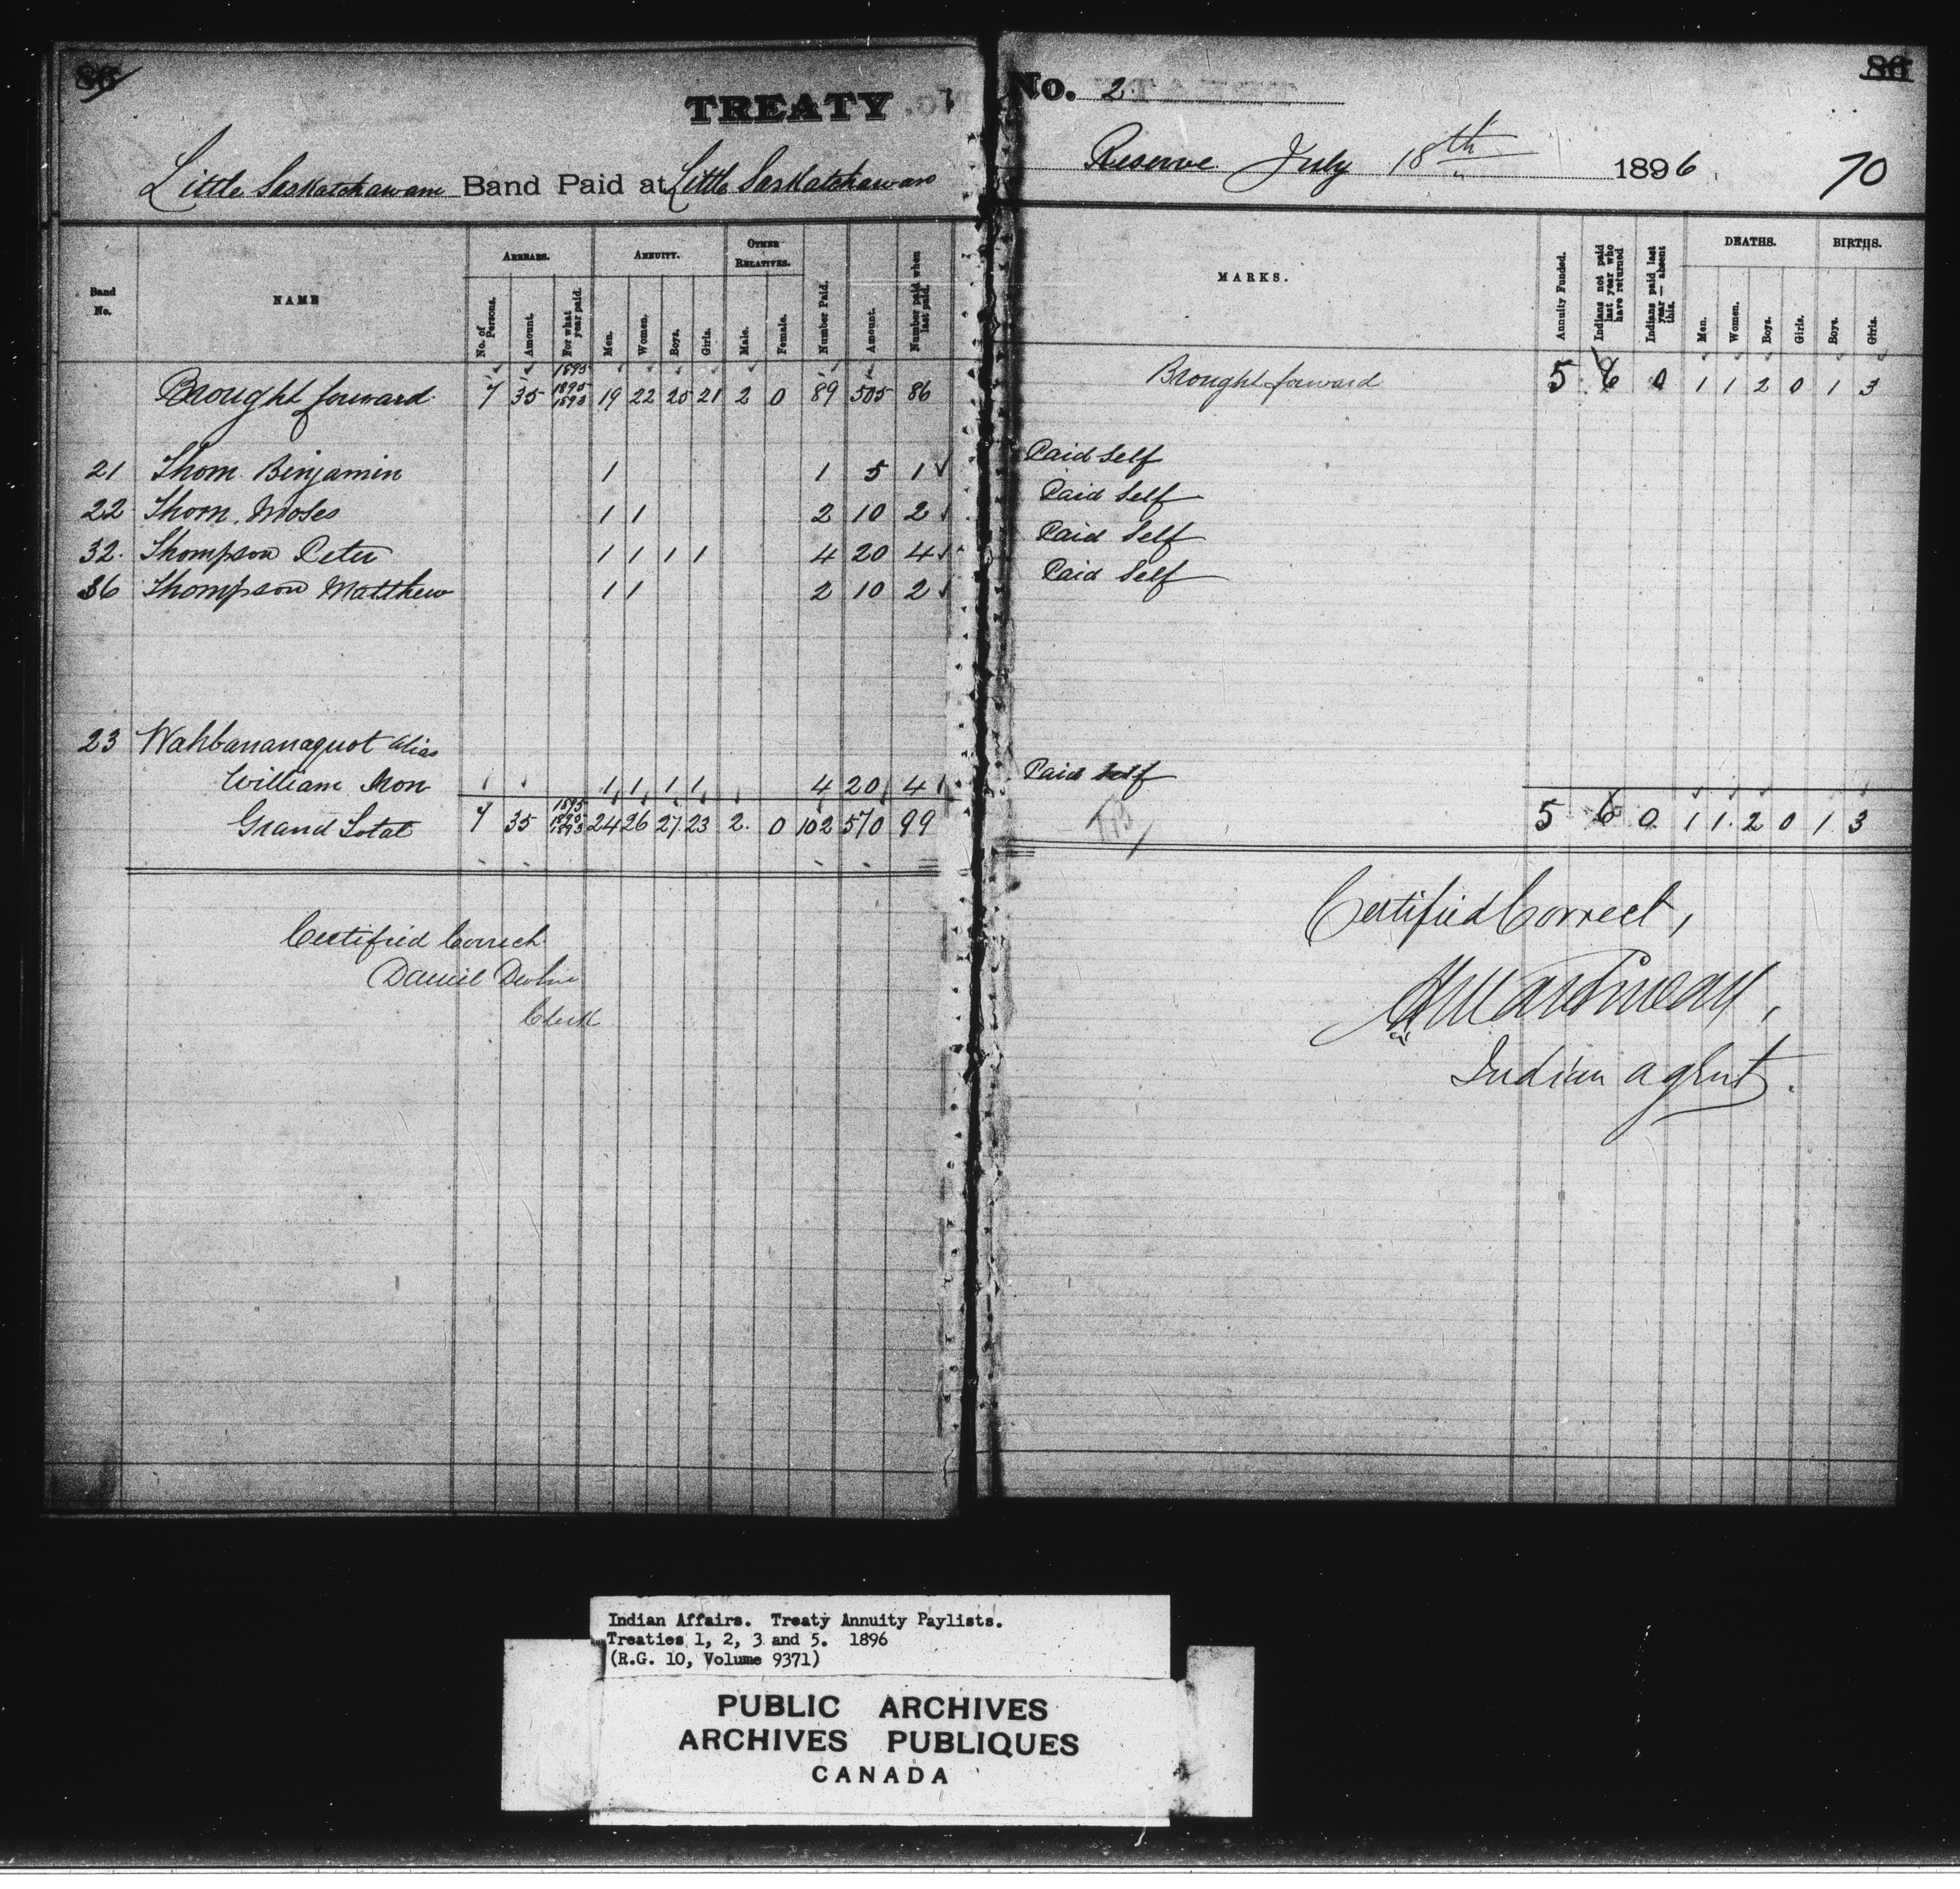 86
TREATY No. 2
86
Little Saskatchawan Band Paid at Little Saskatchawan Reserve July 18th 1896
70
Band No. NAME ARREARS. ANNUITY. OTHER RELATIVES. Number Paid. Amount. Number paid when last paid. MARKS. Annuity Funded. Indians not paid last year who have returned Indians paid last year — absent this. DEATHS. BIRTHS.
No. of Persons. Amount. For what year paid. Men. Women. Boys. Girls. Male. Female. Men. Women. Boys. Girls. Boys. Girls.
Brought forward 7 35 1895 1890 1893 19 22 25 21 2 0 89 505 86 Brought forward 5 6 0 1 1 2 0 1 3
21 Thom Binjamin 1 1 5 1 Paid Self
22 Thom Moses 1 1 2 10 2 Paid Self
32. Thompson Peter 1 1 1 1 4 20 4 Paid Self
36 Thompson Matthew 1 1 2 10 2 Paid Self
23 Wahbananaquot alias
William Mon 1 1 1 1 4 20 4 Paid Self
Grand Total 7 35 1895 1890 1893 24 26 27 23 2. 0 102 570 99 5 6 0 1 1. 2 0 1 3
Certified Correct
Daniel Devlin
Clerk
Certified Correct,
H Martineau,
Indian agent.
Indian Affairs. Treaty Annuity Paylists.
Treaties 1, 2, 3 and 5. 1896
(R.G. 10, Volume 9371)
PUBLIC ARCHIVES
ARCHIVES PUBLIQUES
CANADA